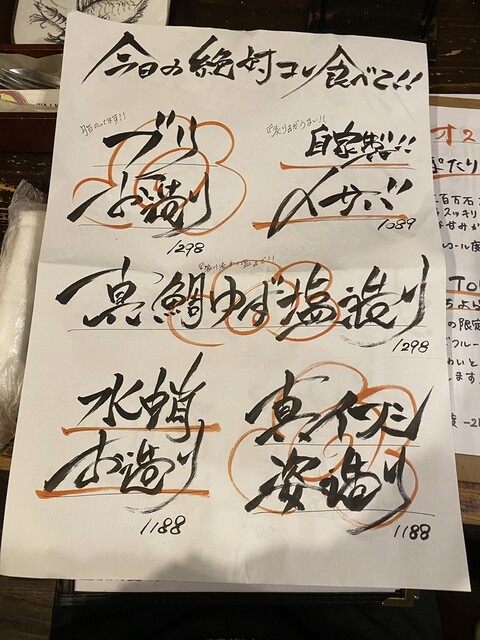 今日の絶対コレ食べて!!
脂のってます!!
ブリ
お造り
1298
自家製!!
〆サバ
1089
真鯛ゆず塩造り
1298
水蛸
お造り
1188
真イワシ
姿造り
1188
オス
ぴたり
百万石
スッキリ
甘みが
コール度
TO
ちよ
の限定
フルー
わいと
します
度 -2